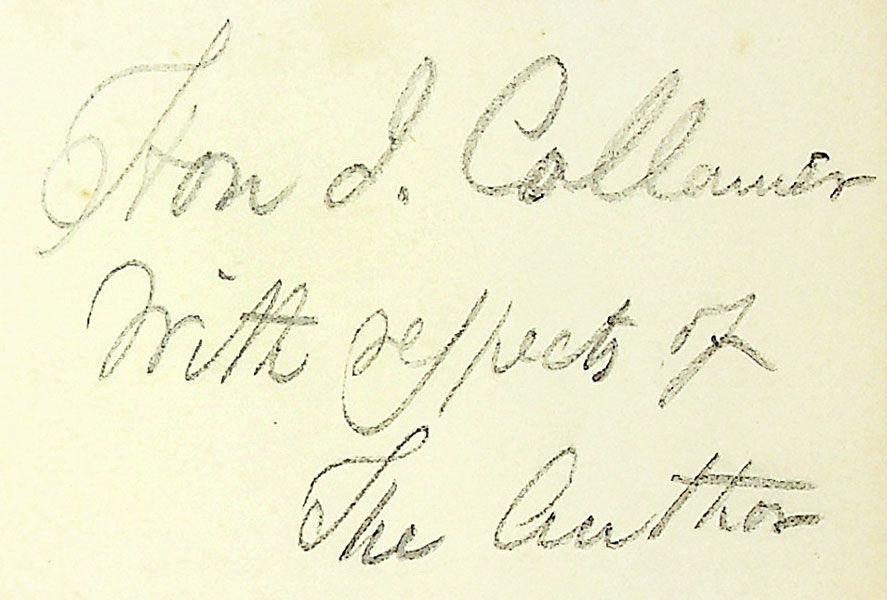 Hon J. Collamer
With respects of
The Author